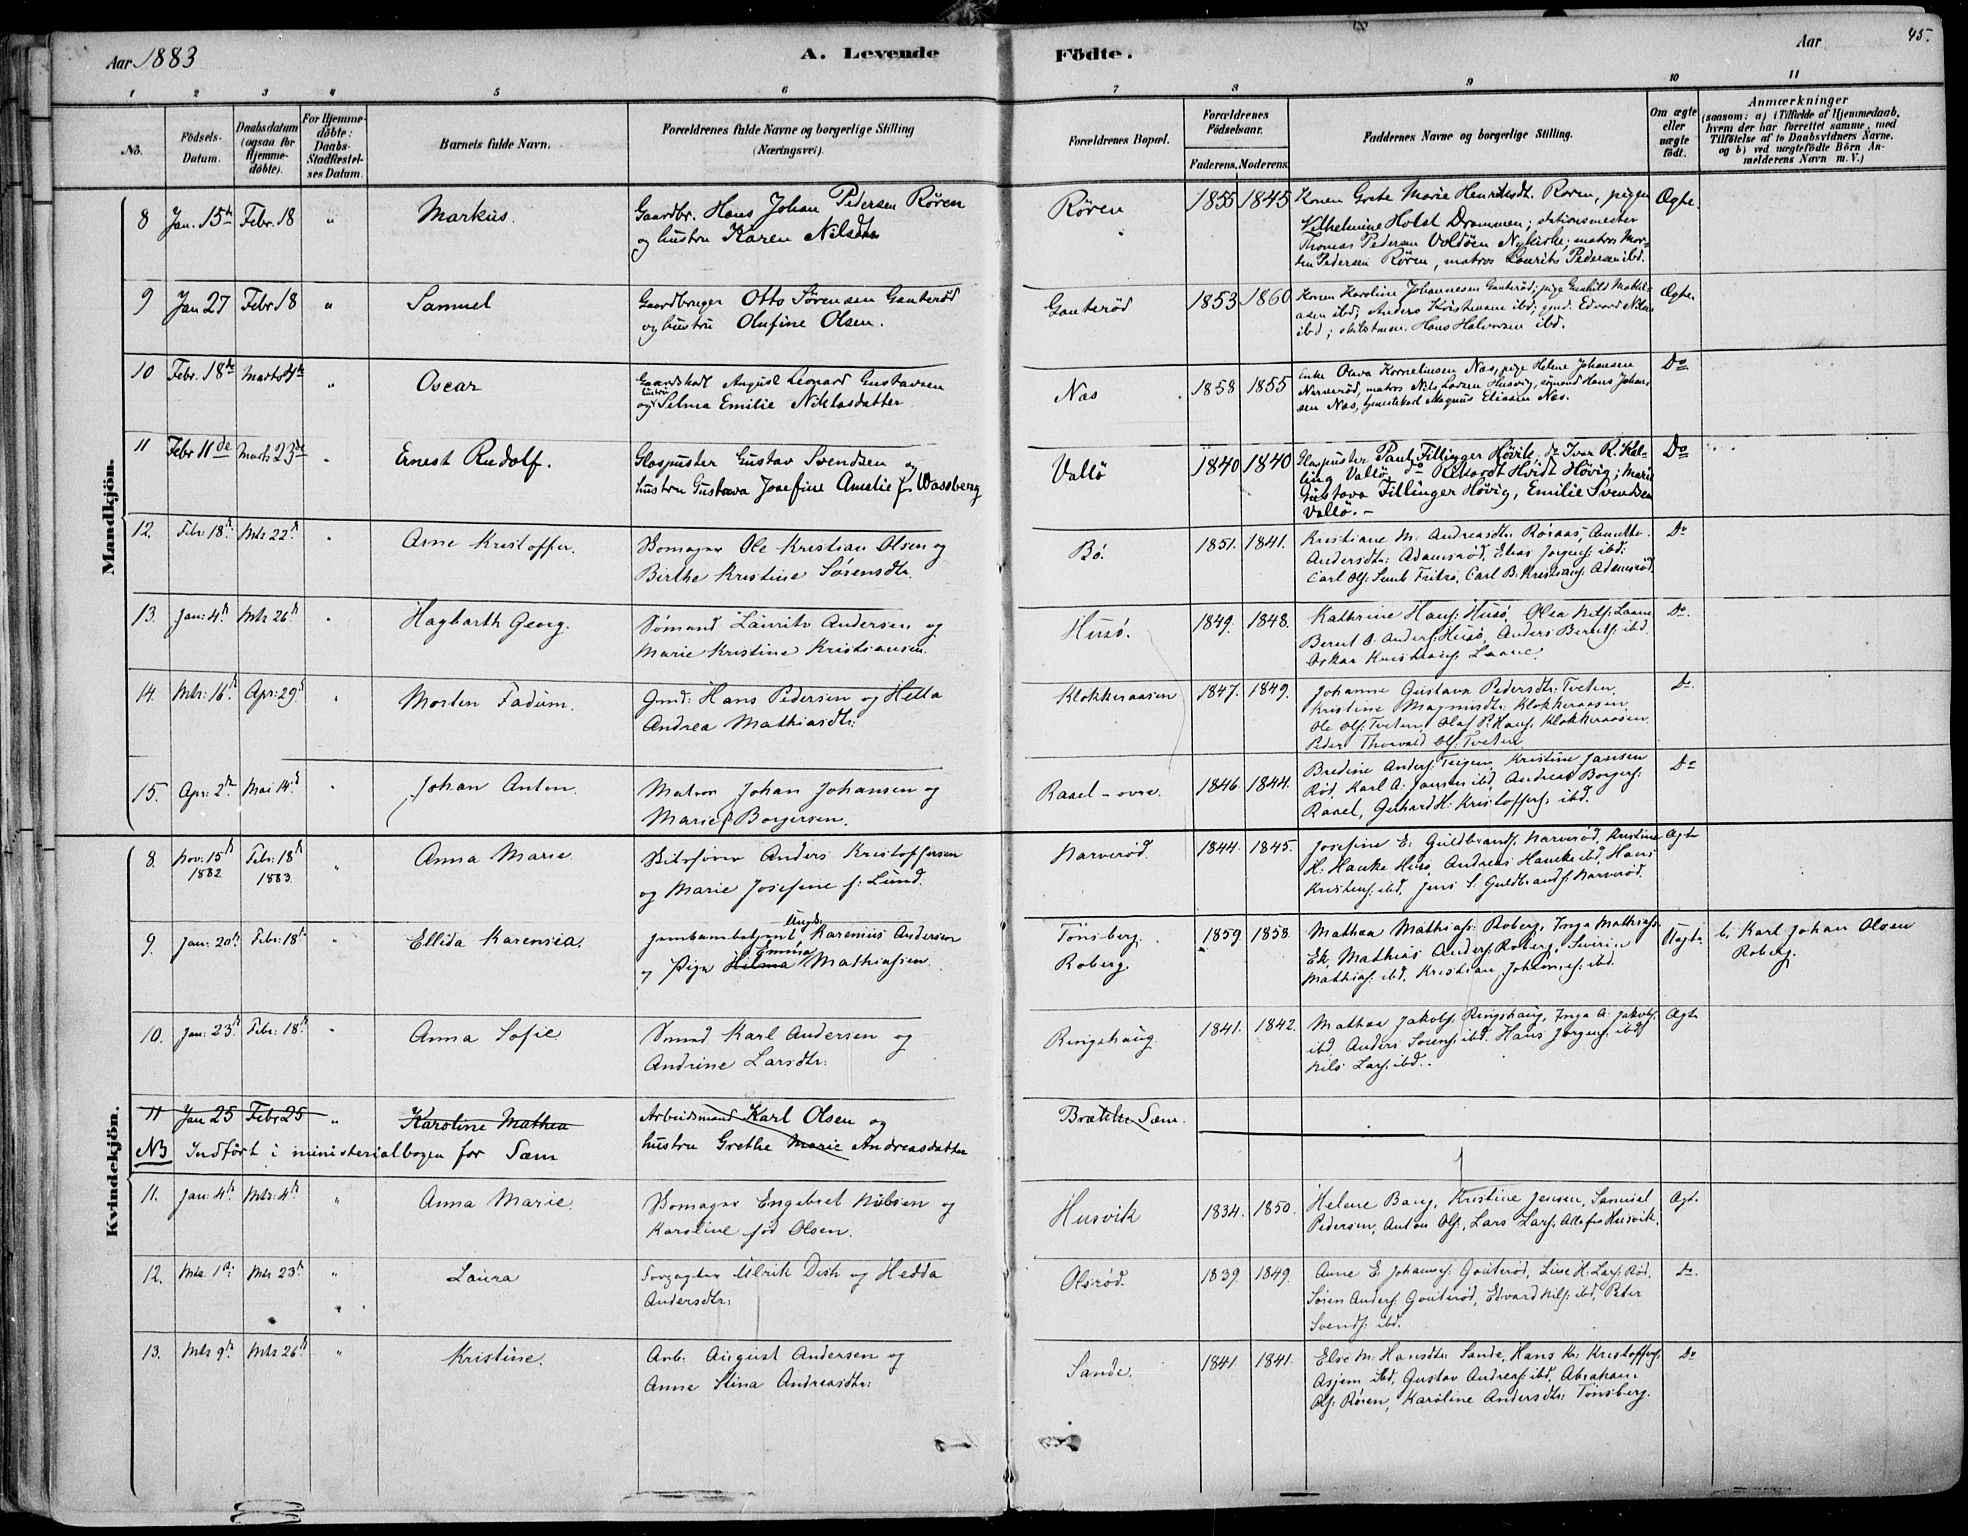 Aar 1883
A. Levende
Födte.
Aar
45.
1 2 3 4 5 6 7 8 9 10 11
No.
Födsels-
Datum.
Daabsdatum
(ogsaa for
Hjemme-
døbte).
For Hjemme-
døbte:
Daabs-
Stadfæstel-
ses Datum.
Barnets fulde Navn.
Forældrenes fulde Navne og borgerlige Stilling
(Næringsvei).
Forældrenes Bopæl.
Forældrenes
Fødselsaar.
Faderens. Moderens.
Faddernes Navne og borgerlige Stilling.
Om ægte
eller
uægte
født.
Anmærkninger
(saasom: a) i Tilfælde af Hjemmedaab,
hvem der har forrettet samme, med
Tilføielse af to Daabsvidners Navne,
og b) ved uægtefødte Börn An-
melderens Navn m. V.)
Mandkjön.
8 Jan. 15de Febr. 18 " Markus.
Gaardbr. Hans Johan Pedersen Røren
og hustru Karen Nilsdtr
Røren 1855 1845
Konen Grete Marie Henriksdt. Røren, pigen
Vilhelmine Holst Drammen; stationsmester
Thomas Pedersen Voldöen Nykirke; matros Mor-
ten Pedersen Røren, matros Laurits Pedersen ibd.
Ægte.
9 Jan 27 Febr 18 " Samuel
Gaardbruger Otto Sørensen Gauterød
og hustru Olufine Olsen.
Gauterød 1853 1860
Konen Karoline Johannesen Gauterød; pige Gunhild
ibd; Anders Kristensen ibd; gmd. Edvard Nilsen
ibd; Hans Halvorsen ibd.
Ægte.
10 Febr. 18de Marts 4de " Oscar
August Leonard Gustavsen
og hustru Selma Emilie Niklasdatter
Nas 1858 1855
Enke Olava Korneliussen Nas, pige Helene Johansen
Narverød, matros Nils Larsen Husvig, sömand Hans Johan-
sen Nas, tjenestekarl Magnus Eliasen Nas.
Do
11 Febr 11de Marts 23de " Ernest Rudolf.
Glaspuster Gustav Svendsen og
hustru Gustava Josefine Amelie f. Wassberg
Vallö 1840 1840
Glaspuster Paul Fillinger Høvik, do Ivar R. Kol-
ling Vallö, do Rikardt Hvidt Hövig; Marie
Gustava Fillinger Høvig, Emilie Svendsen
Vallö.-
Do
12. Febr: 18de Mts 22de " Arne Kristoffer.
Bomager Ole Kristian Olsen og
Birthe Kristine Sørensdtr.
Bö. 1851. 1841.
Kristiane M: Andreasdtr: Roraas, Anette
Andersdtr: Adamsröd, Elias Jorgens: ibd:
Carl Ols: Fritsö, Carl B: Kristians: Adamsröd
Do
13. Jan: 4de Mts 26de " Hagbarth Georg.
Sømand Laurits Andersen og
Marie Kristine Kristiansen.
Husö. 1849. 1848.
Kathrine Hans: Husö, Olea Nils: Laane
Bernt O. Anders: Husö, Anders Bernts: ibd.
Oskar Kristians: Laane.
Do.
14. Mts: 16de Apr: 29de " Morten Fadum.
Gmd: Hans Pedersen og Hella
Andrea Mathiasdtr:
Klokkeraasen 1847. 1849.
Johanne Gustava Pedersdtr: Tveten,
Kristine Magnusdtr: Klokkeraasen,
Ole Ols: Tveten, Olaf P: Hans: Klokkeraasen
Peder Thorvald Ols: Tveten
Do
15. Apr: 2de Mai 14de " Johan Anton.
Matros Johan Johansen og
Marie Borgersen.
Raael - ovre. 1846 1844.
Bredine Anders: Teigen, Kristine Jansen
Röd, Karl A: Jansen ibd, Andreas Borgers:
Raael, Gerhard H: Kristoffers: ibd.
Do
Kvindekjön.
8. Nov: 15de 1882 Febr: 18de 1883 " Anna Marie.
Anders Kristoffersen
og Marie Josefine f: Lund.
Narveröd. 1844. 1845.
Josefine E: Guldbrands: Narveröd, Kristine
H: Hauke Husö, Andreas Hauke ibd, Hans
Kristens: ibd, Jens S: Guldbrands: Narveröd.
Ægte
9. Jan: 20de Febr: 18de " Ellida Karensia.
Ungk.
Karenius Andersen
Emma
og Pige Hilma Mathiassen.
Tönsberg.
Roberg. 1859 1858
Mathea Mathias: Roberg, Inga Mathias:
Ek, Mathias Anders: Roberg, Severin
Mathias: ibd, Kristian Johannes: ibd.
Uægte.
b. Karl Johan Olsen
Roberg.
10. Jan: 23de Febr: 18de " Anna Sofie
Sömand Karl Andersen og
Andrine Larsdtr:
Ringshaug 1841. 1842.
Mathea Jakobs: Ringshaug, Inga A: Jakobs:
ibd, Anders Sorens: ibd. Hans Jorgens: ibd,
Nils Lars: ibd..
Ægte
11 Jan 25 Febr 25 " Karoline Mathea
Arbeidsmand Karl Olsen og
hustru Grethe Marie Andreasdatter
Sæm.
NB Indført i ministerialbogen for Sæm
11. Jan: 4de Mts: 4de " Anna Marie.
Bomager Engebret Nilsen og
Karoline fød Olsen.
Husvik 1834. 1850.
Helene Bang, Kristine Jensen, Samuel
Pedersen, Anton Ols:, Lars Lars: Alle fra Husvik.
Ægte
12. Mts 1ste Mts 23de " Laura
Ulrik Dish og Hedda
Andersdtr:
Olsröd. 1839. 1849.
Anne E. Johannes: Gauteröd, Line H: Lars: Röd,
Sören Anders: Gauteröd, Edvard Nils: ibd, Peter
Svends: ibd.
Do.
13. Mts 9de Mts 26de " Kristine.
Arb: August Andersen og
Anne Stina Andreasdtr:
Sande. 1841 1841.
Else M: Hansdtr: Sande, Hans Kr: Kristoffers:
Asjem ibd, Gustav Andreas: ibd, Abraham
Ols: Røren, Karoline Andersdtr: Tönsberg.
Do